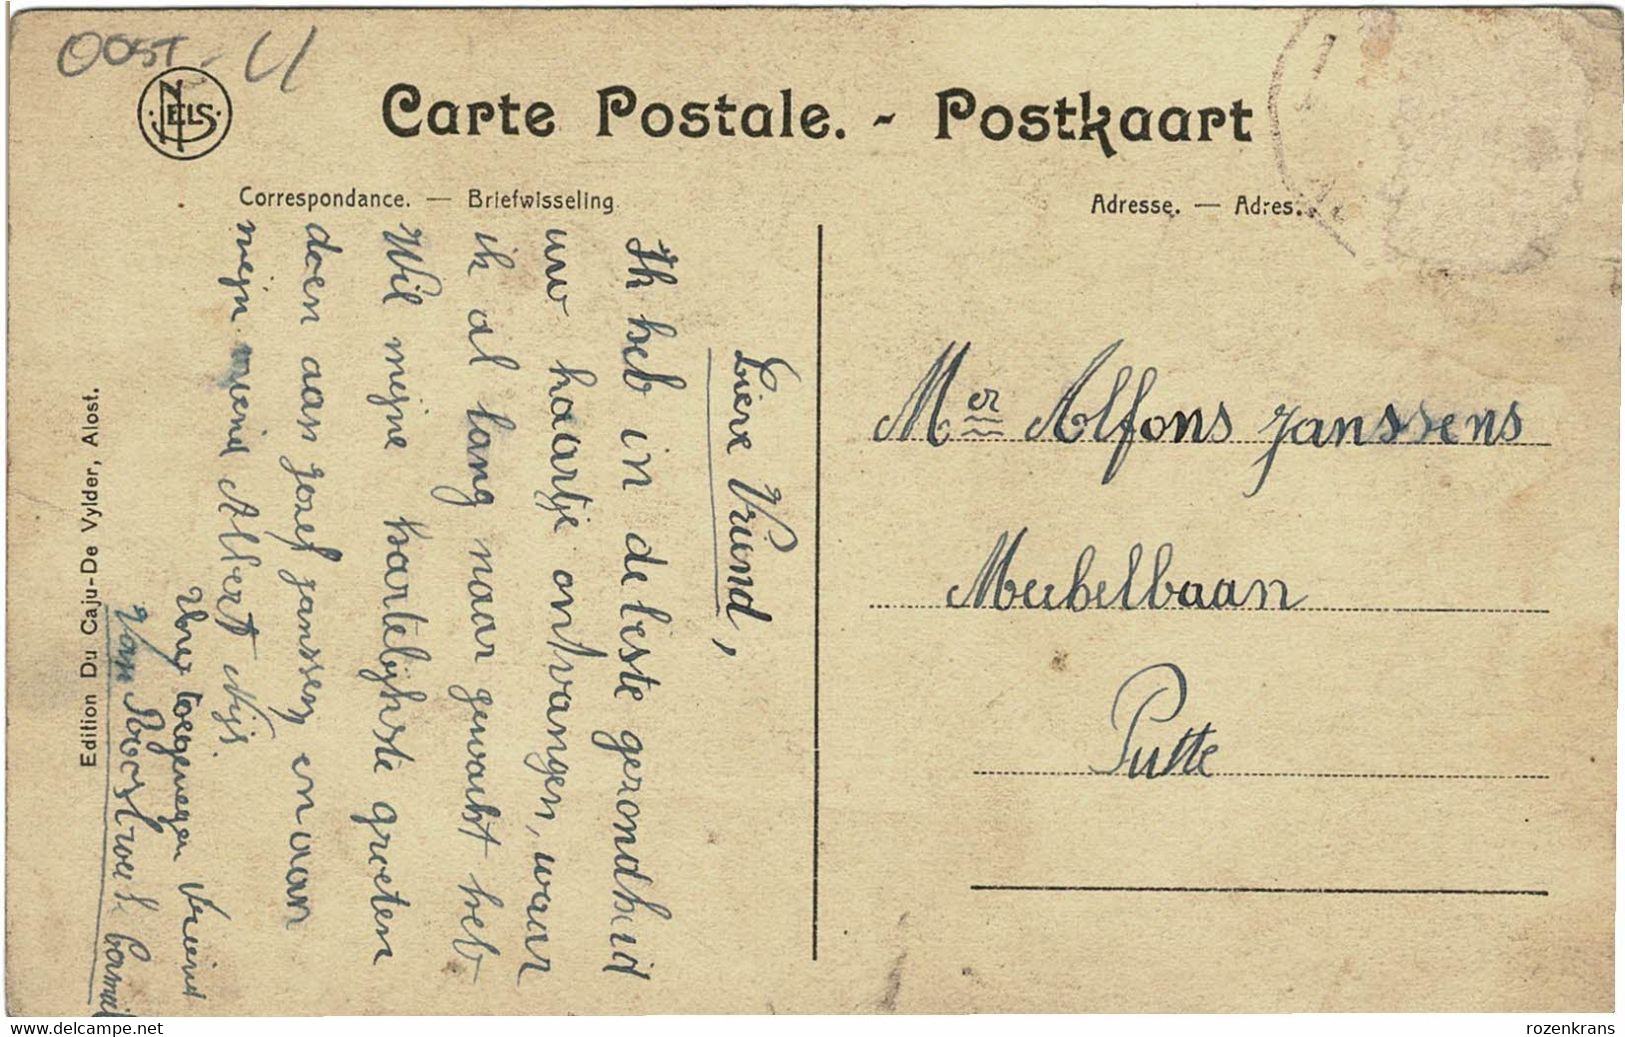 OOST
NELS
Carte Postale. - Postkaart
Correspondance. — Briefwisseling
Adresse. — Adres.
Liere Vriend,
Ik heb in de beste gezondheid
uw kaartje ontvangen, waar
ik al lang naar gewacht heb
Wil mijne hartelijkste groeten
doen aan Jozef Janssens en aan
mijn vriend Albert Nijs.
Uw toegenegen Vriend
Van
Mer Alfons Janssens
Meekelbaan
Putte
Edition Du Caju-De Vylder, Alost.
www.delcampe.net
rozenkrans